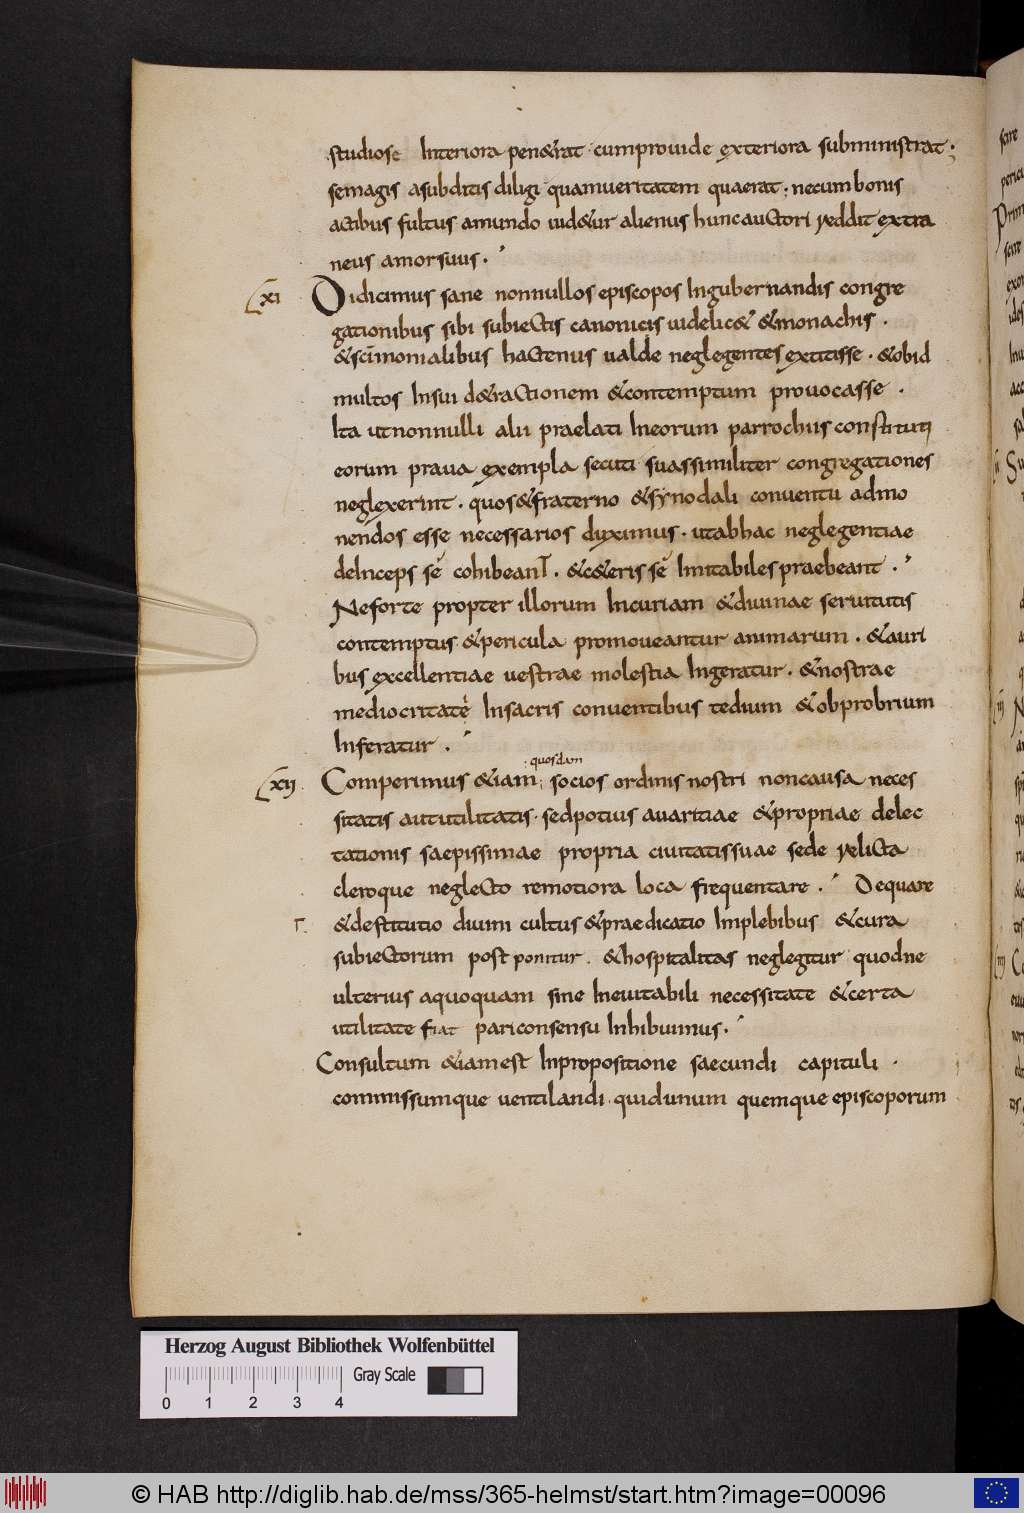 studiose Interiora pen&rat cumprouide exteriora subministrat;
semagis asubditis diligi quamueritatem quaerat; necum bonis
actibus fultus amundo uid&ur alienus huncauctori reddit extra
neus amorsuus.
xi Didicimus sane nonnullos episcopos Ingubernandis congre
gationibus sibi subiectis canonicis uidelic& &monachis.
&sc̄imonialibus hactenus ualde neglegentes extitisse. &obid
multos Insui d&ractionem &contemptum prouocasse.
Ita utnonnulli alii praelati Ineorum parrochiis constituti
eorum praua exempla secuti suassimiliter congregationes
neglexerint. quos&fraterno &synodali conuentu admo
nendos esse necessarios diximus. utabhac neglegentiae
deInceps se cohibeant. &c&eris se Imitabiles praebeant.
Neforte propter illorum Incuriam &diuinae seruitutis
contemptus &pericula promoueantur animarum. &auri
bus excellentiae uestrae molestia Ingeratur. &nostrae
mediocritate Insacris conuentibus tedium &obprobrium
Inferatur.
quosdam
xii Comperimus &iam socios ordinis nostri noncausa neces
sitatis aututilitatis. sedpotius auaritiae &propriae delec
tationis saepissimae propria ciuitatissuae sede relicta
cleroque neglecto remotiora loca frequentare. Dequare
r. &destitutio diuini cultus &praedicatio Implebibus &cura
subiectorum post ponitur. &hospitalitas neglegitur quodne
ulterius aquoquam sine Ineuitabili necessitate &certa
utilitate fiat pariconsensu Inhibuimus.
Consultum &iamest Inpropositione saecundi capituli.
commissumque uentilandi. quidunum quemque episcoporum
Herzog August Bibliothek Wolfenbüttel
Gray Scale
0 1 2 3 4
© HAB http://diglib.hab.de/mss/365-helmst/start.htm?image=00096